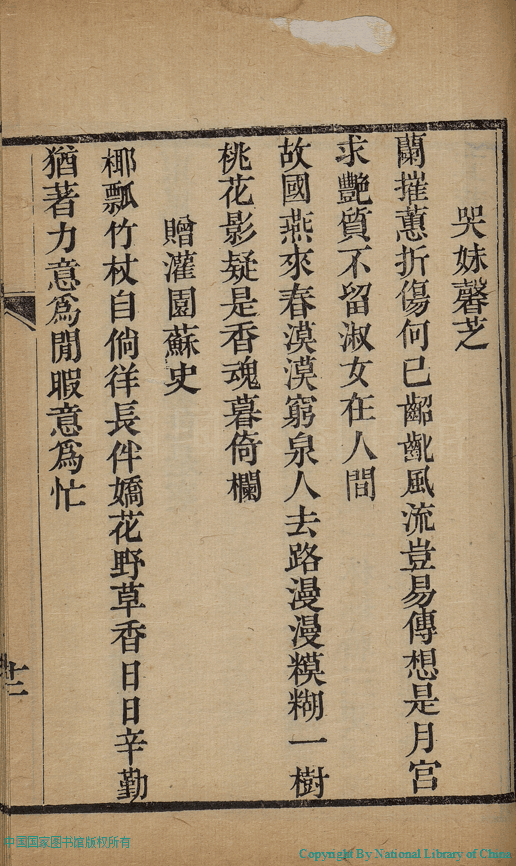 哭妹馨芝
蘭摧蕙折傷何已齠齔風流豈易傳想是月宮
求艷質不留淑女在人間
故國燕來春漠漠窮泉人去路漫漫糢糊一樹
桃花影疑是香魂暮倚欄
贈灌園蘇史
椰瓢竹杖自倘徉長伴嬌花野草香日日辛勤
猶著力意爲閒暇意爲忙
十二
中国国家图书馆版权所有
Copyright By National Library of China